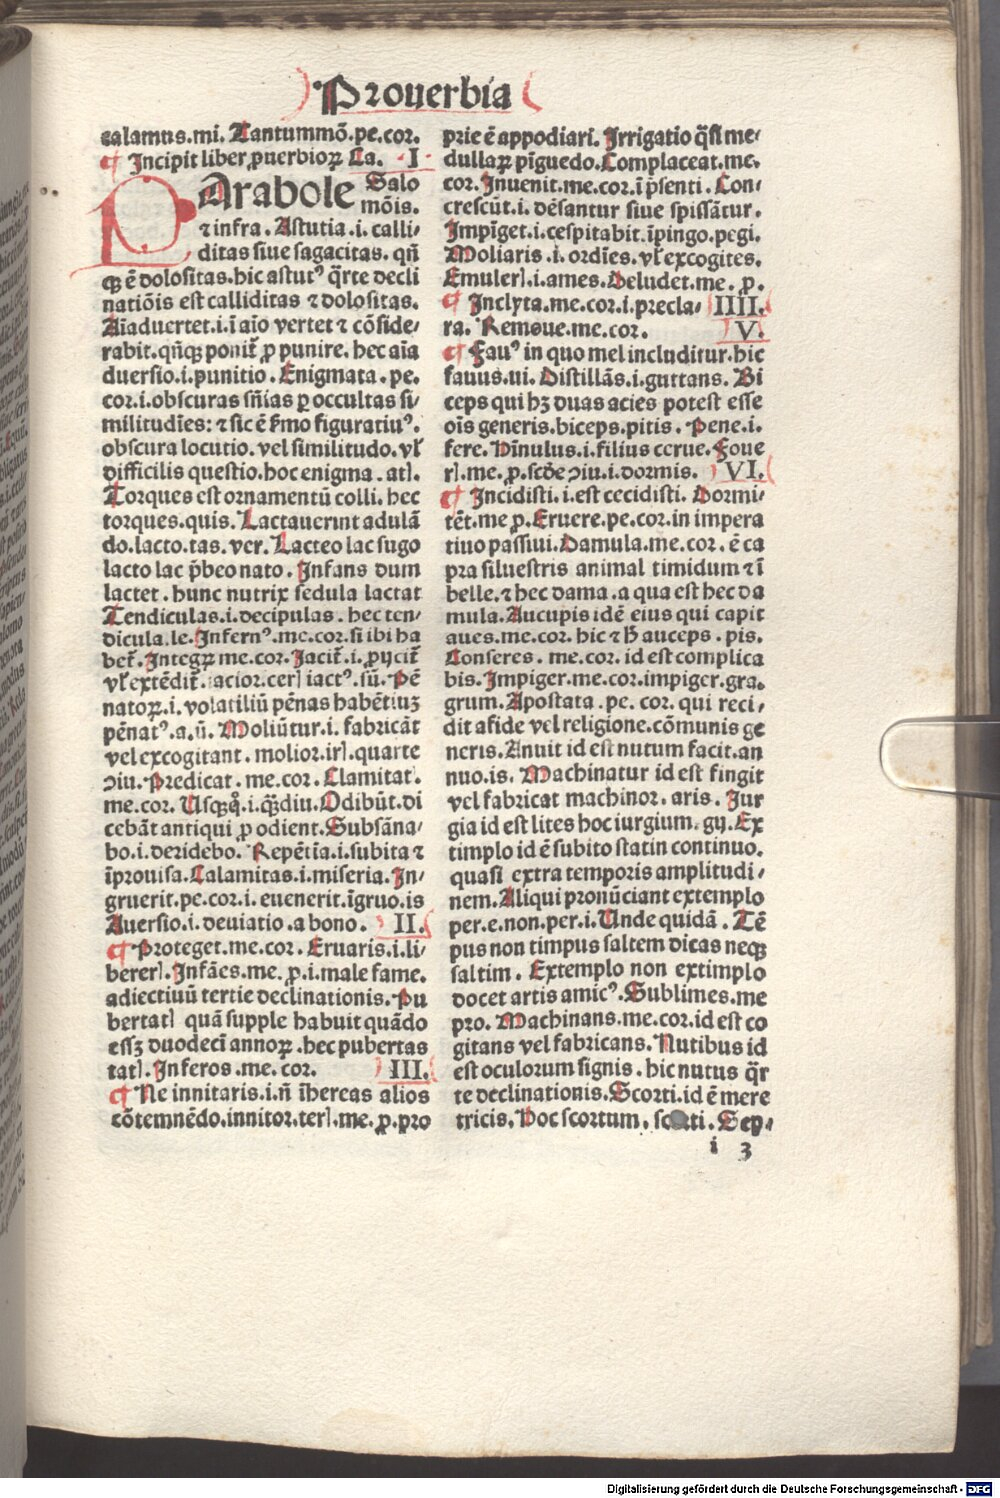 Prouerbia
calamus.mi. Tantummō.pe.cor.
¶ Incipit liber ꝓuerbioꝝ Ca. I
PArabole Salo
mōis.
⁊ infra. Astutia.i. calli-
ditas siue sagacitas. qn̄
qꝫ ē dolositas.hic astutꝰ q̄rte decli
natiōis est calliditas ⁊ dolositas.
Aīaduertet.i.ī aīo vertet ⁊ cōside-
rabit.qn̄qꝫ ponit̄ ꝓ punire. hec aīa
duersio.i.punitio. Enigmata.pe.
cor.i.obscuras sn̄ias ꝑ occultas si-
militudīes: ⁊ sic ē ẜmo figuratiuꝰ.
obscura locutio. vel similitudo. vl̄
difficilis questio.hoc enigma.atꝭ.
Torques est ornamentū colli. hec
torques.quis. Lactauerint adulā
do.lacto.tas. ver. Lacteo lac sugo
lacto lac p̄beo nato. Infans dum
lactet. hunc nutrix sedula lactat
Tendiculas.i.decipulas. hec ten-
dicula.le. Infernꝰ.me.cor.si ibi ha
bet̄. Integꝝ me.cor. Iacit̄.i.ꝓijcit̄
vl̄ extēdit̄. iacior.cerꝭ iactꝰ.sū. Pē
natoꝝ.i.volatiliū pēnas habētiuꝫ
pēnatꝰ.a.ū. Moliūtur.i. fabricāt
vel excogitant. molior.irꝭ.quarte
ↄiu. Predicat. me.cor. Clamitat.
me.cor. Usqꝫq̊.i.qꝫdiu. Odibūt.di
cebāt antiqui ꝓ odient. Subsāna-
bo.i.deridebo. Repētīa.i.subita ⁊
īprouisa. Calamitas.i.miseria. In-
gruerit.pe.cor.i.euenerit.īgruo.is
Auersio.i.deuiatio.a bono. II.
¶ Proteget.me.cor. Eruaris.i.li-
bererꝭ. Infāes.me.ꝓ.i.male fame.
adiectiuū tertie declinationis. Pu
bertatꝭ quā supple habuit quādo
essꝫ duodecī annoꝝ.hec pubertas
tatꝭ. Inferos.me.cor. III.
¶ Ne innitaris.i.n̄ īhereas alios
cōtemnēdo.innitor.terꝭ.me.ꝓ.pro
prie ē appodiari. Irrigatio q̄si me-
dullaꝝ pīguedo. Complaceat.me.
cor. Inuenit.me.cor.ī p̄senti. Con-
crescūt.i. dēsantur siue spissātur.
Impīget.i.cespitabit.īpingo.pegi.
Moliaris.i.ordīes. vl̄ excogites.
Emulerꝭ.i.ames. Deludet.me.ꝓ.
¶ Inclyta.me.cor.i.precla- IIII.
ra. Remoue.me.cor. V.
¶ Fauꝰ in quo mel includitur.hic
fauus.ui. Distillās.i.guttans. Bi
ceps qui hꝫ duas acies potest esse
oīs generis.biceps.pitis. Pene.i.
fere. Hīnulus.i.filius cerue. Foue
rꝭ.me.ꝓ.scd̄e ↄiu.i.dormis. VI.
¶ Incidisti.i.est cecidisti. Dormi-
tēt.me ꝓ. Eruere.pe.cor.in impera
tiuo passiui. Damula.me.cor.ē ca
pra siluestris animal timidum ⁊ ī
belle.⁊ hec dama.a qua est hec da
mula. Aucupis idē eius qui capit
aues.me.cor. hic ⁊ h̄ auceps.pis.
Conseres. me.cor. id est complica
bis. Impiger.me.cor.impiger.gra.
grum. Apostata.pe.cor. qui reci-
dit a fide vel religione.cōmunis ge
neris. Anuit id est nutum facit.an
nuo.is. Machinatur id est fingit
vel fabricat machinor.aris. Iur
gia id est lites hoc iurgium.gij. Ex
timplo id ē subito statin continuo.
quasi extra temporis amplitudi-
nem. Aliqui pronūciant extemplo
per.e.non.per.i. Unde quidā. Tē
pus non timpus saltem dicas neqꝫ
saltim. Extemplo non extimplo
docet artis amicꝰ. Sublimes.me
pro. Machinans.me.cor.id est co
gitans vel fabricans. Nutibus id
est oculorum signis.hic nutus q̄r
te declinationis. Scorti.id ē mere
tricis. Hoc scortum. scorti. Sep-
i 3
Digitalisierung gefördert durch die Deutsche Forschungsgemeinschaft - DFG